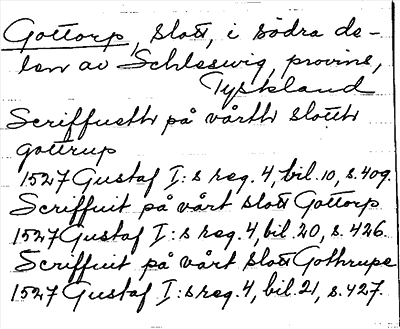 Gottorp, slott, i södra de-
len av Schleswig provins,
Tyskland
Scriffueth på vårth slotth
gottrup
1527 Gustaf I:s reg. 4, bil. 10, s. 409.
Scriffuit på vårt slott Gottorp
1527 Gustaf I:s reg. 4, bil. 20, s. 426.
Scriffuit på vårt slott Gothrupe
1527 Gustaf I:s reg. 4, bil. 21, s. 427.